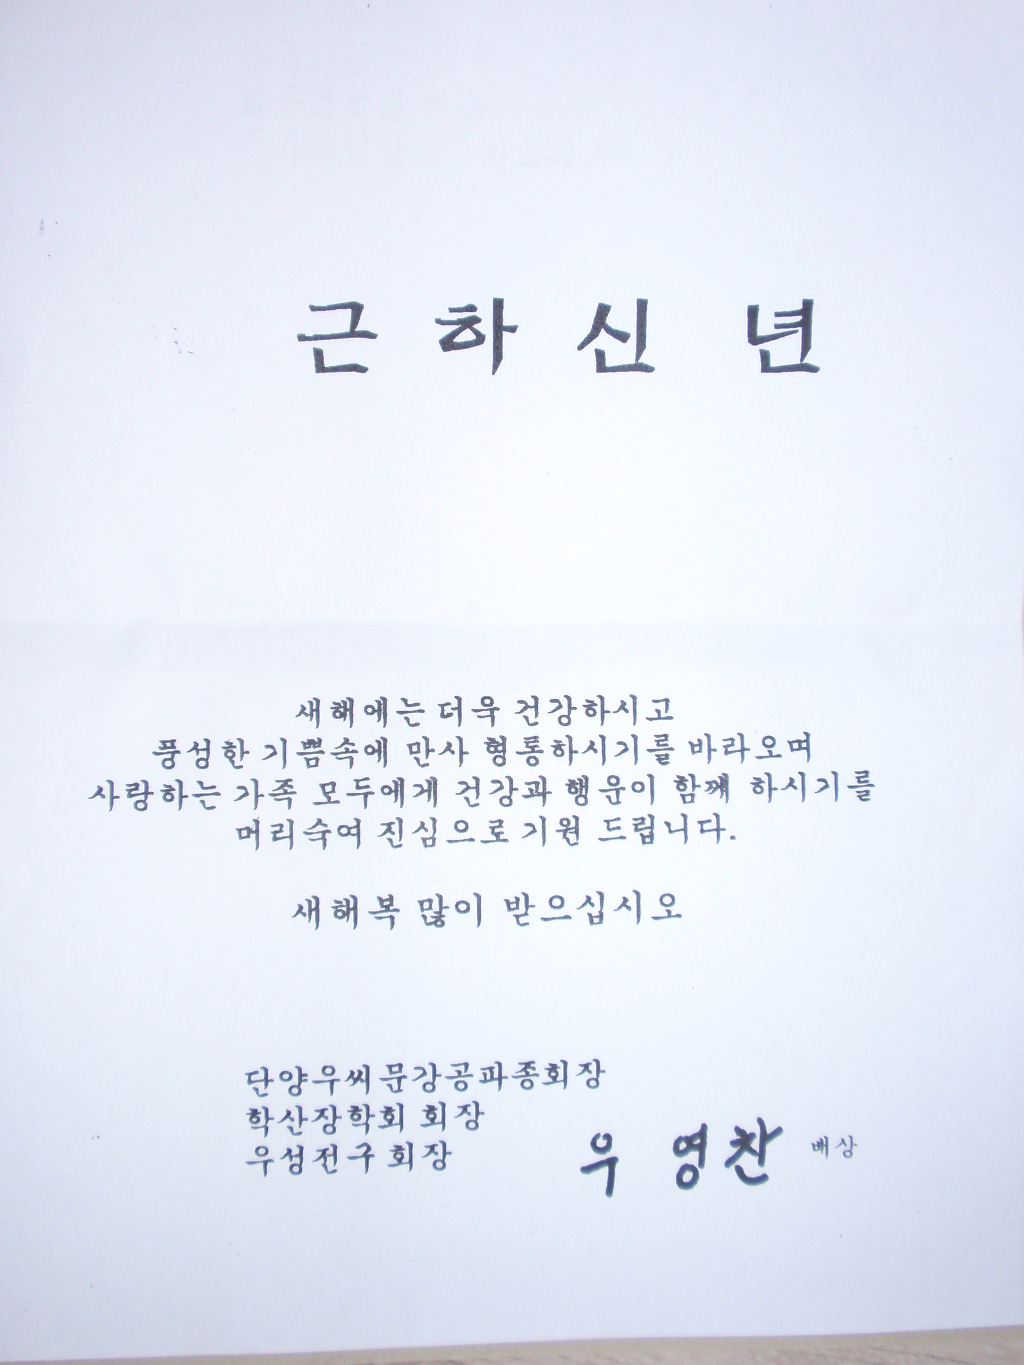 근 하 신 년
새해에는 더욱 건강하시고
풍성한 기쁨속에 만사 형통하시기를 바라오며
사랑하는 가족 모두에게 건강과 행운이 함께 하시기를
머리숙여 진심으로 기원 드립니다.
새해복 많이 받으십시오
단양우씨 문강공파종회장
학산장학회 회장
우성전구 회장
우 영찬 배상